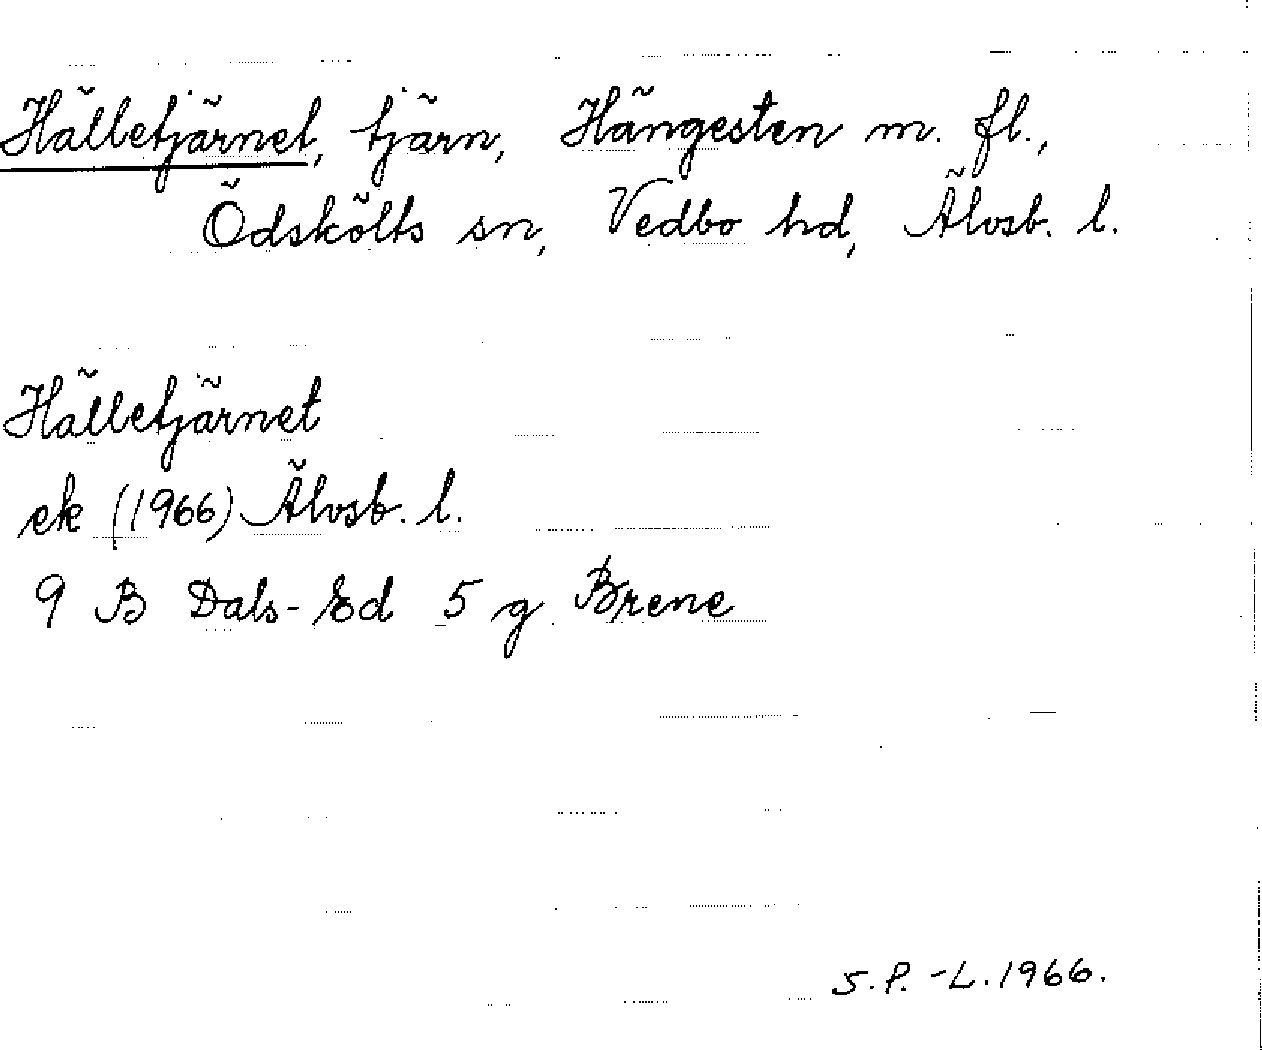 Hälletjärnet, tjärn, Hängesten m. fl.,
Ödskölts sn, Vedbo hd, Älvsb. l.
Hälletjärnet
ek (1966) Älvsb. l.
9 B Dals-Ed 5 g Brene
S.P.-L. 1966.